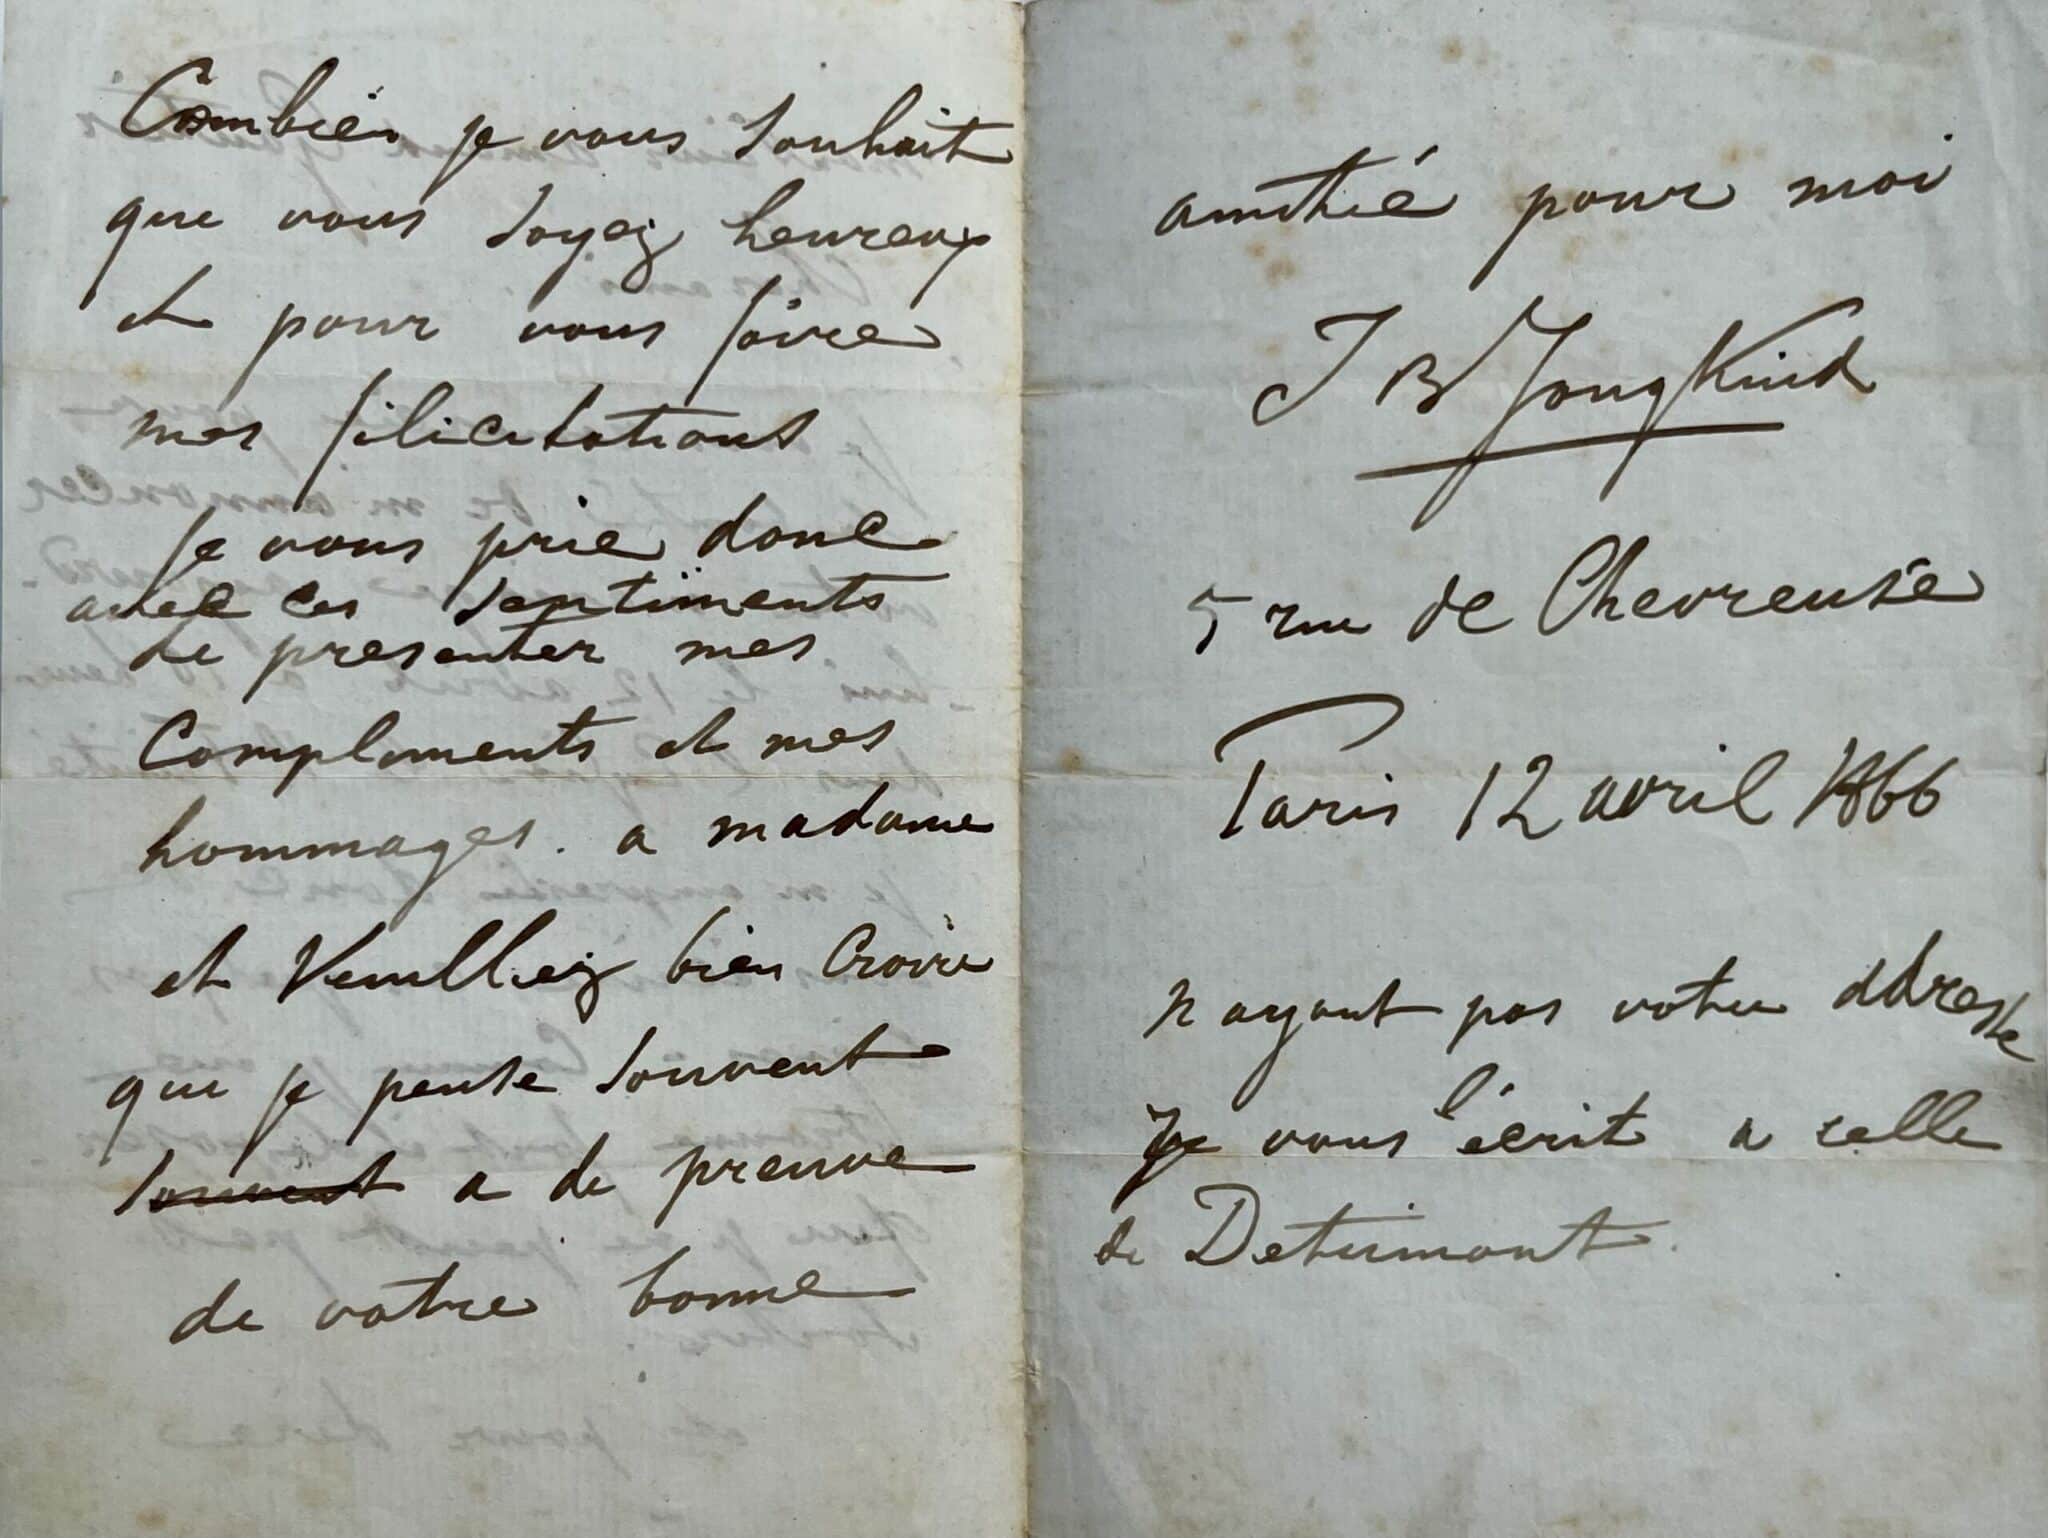 Combien je vous souhait
que vous soyez heureux
et pour vous faire
mes filicitations
je vous prie donc
avec ces sentiments
de presenter mes
Compliments et mes
hommages. a madame
et Veuillez bien Croire
que je pense souvent
souvent a de preuve
de votre bonne
amitié pour moi
J B Jongkind
5 rue de Chevreuse
Paris 12 avril 1866
n ayant pas votre adresse
Je vous l'écrit a celle
de Detrimont